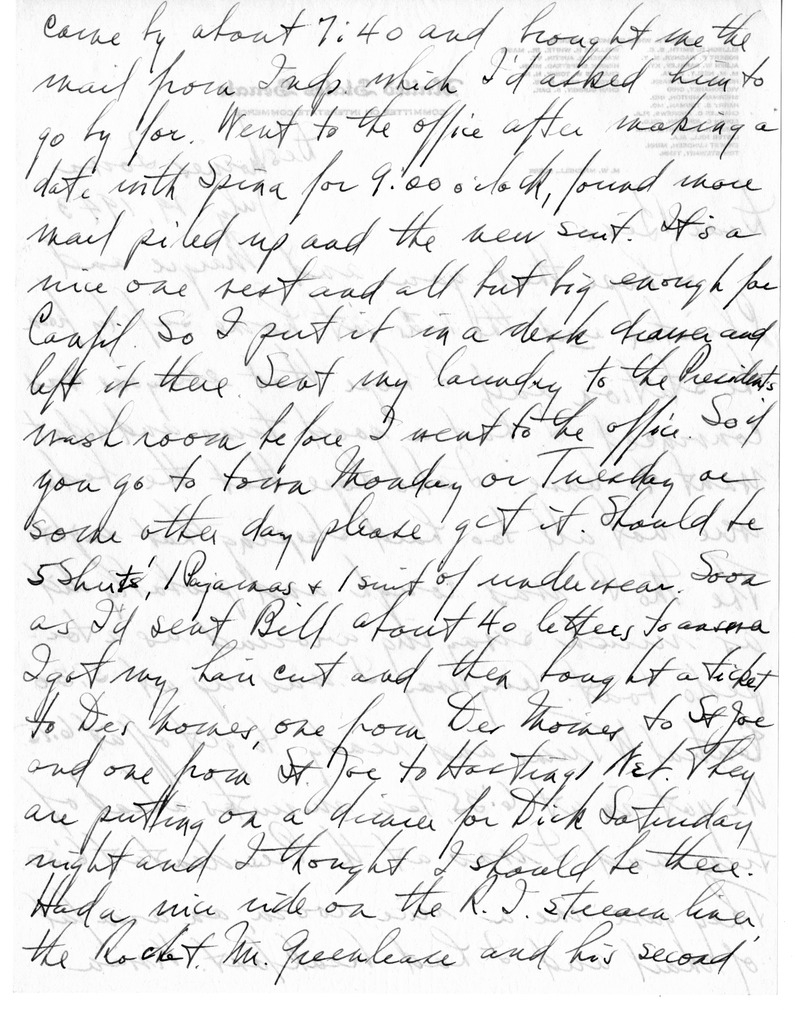 came by about 7:40 and brought me the
mail from Indp. which I'd asked him to
go by for. Went to the office after making a
date with Spina for 9:00 o'clock, found more
mail piled up and the new suit. It's a
nice one vest and all but big enough for
Canfil. So I put it in a desk drawer and
left it there. Sent my laundry to the Presidents
wash room before I went to the office. So if
you go to town Monday or Tuesday or
some other day please get it. Should be
5 Shirts, 1 Pajamas & 1 suit of underwear. Soon
as I'd sent Bill about 40 letters to answer
I got my hair cut and then bought a ticket
to Des Moines, one from Des Moines to St Joe
and one from St. Joe to Hastings Neb. They
are putting on a dinner for Dick Saturday
night and I thought I should be there.
Had a nice ride on the R.I. stream liner,
the Rocket. Mr. Greenlease and his second